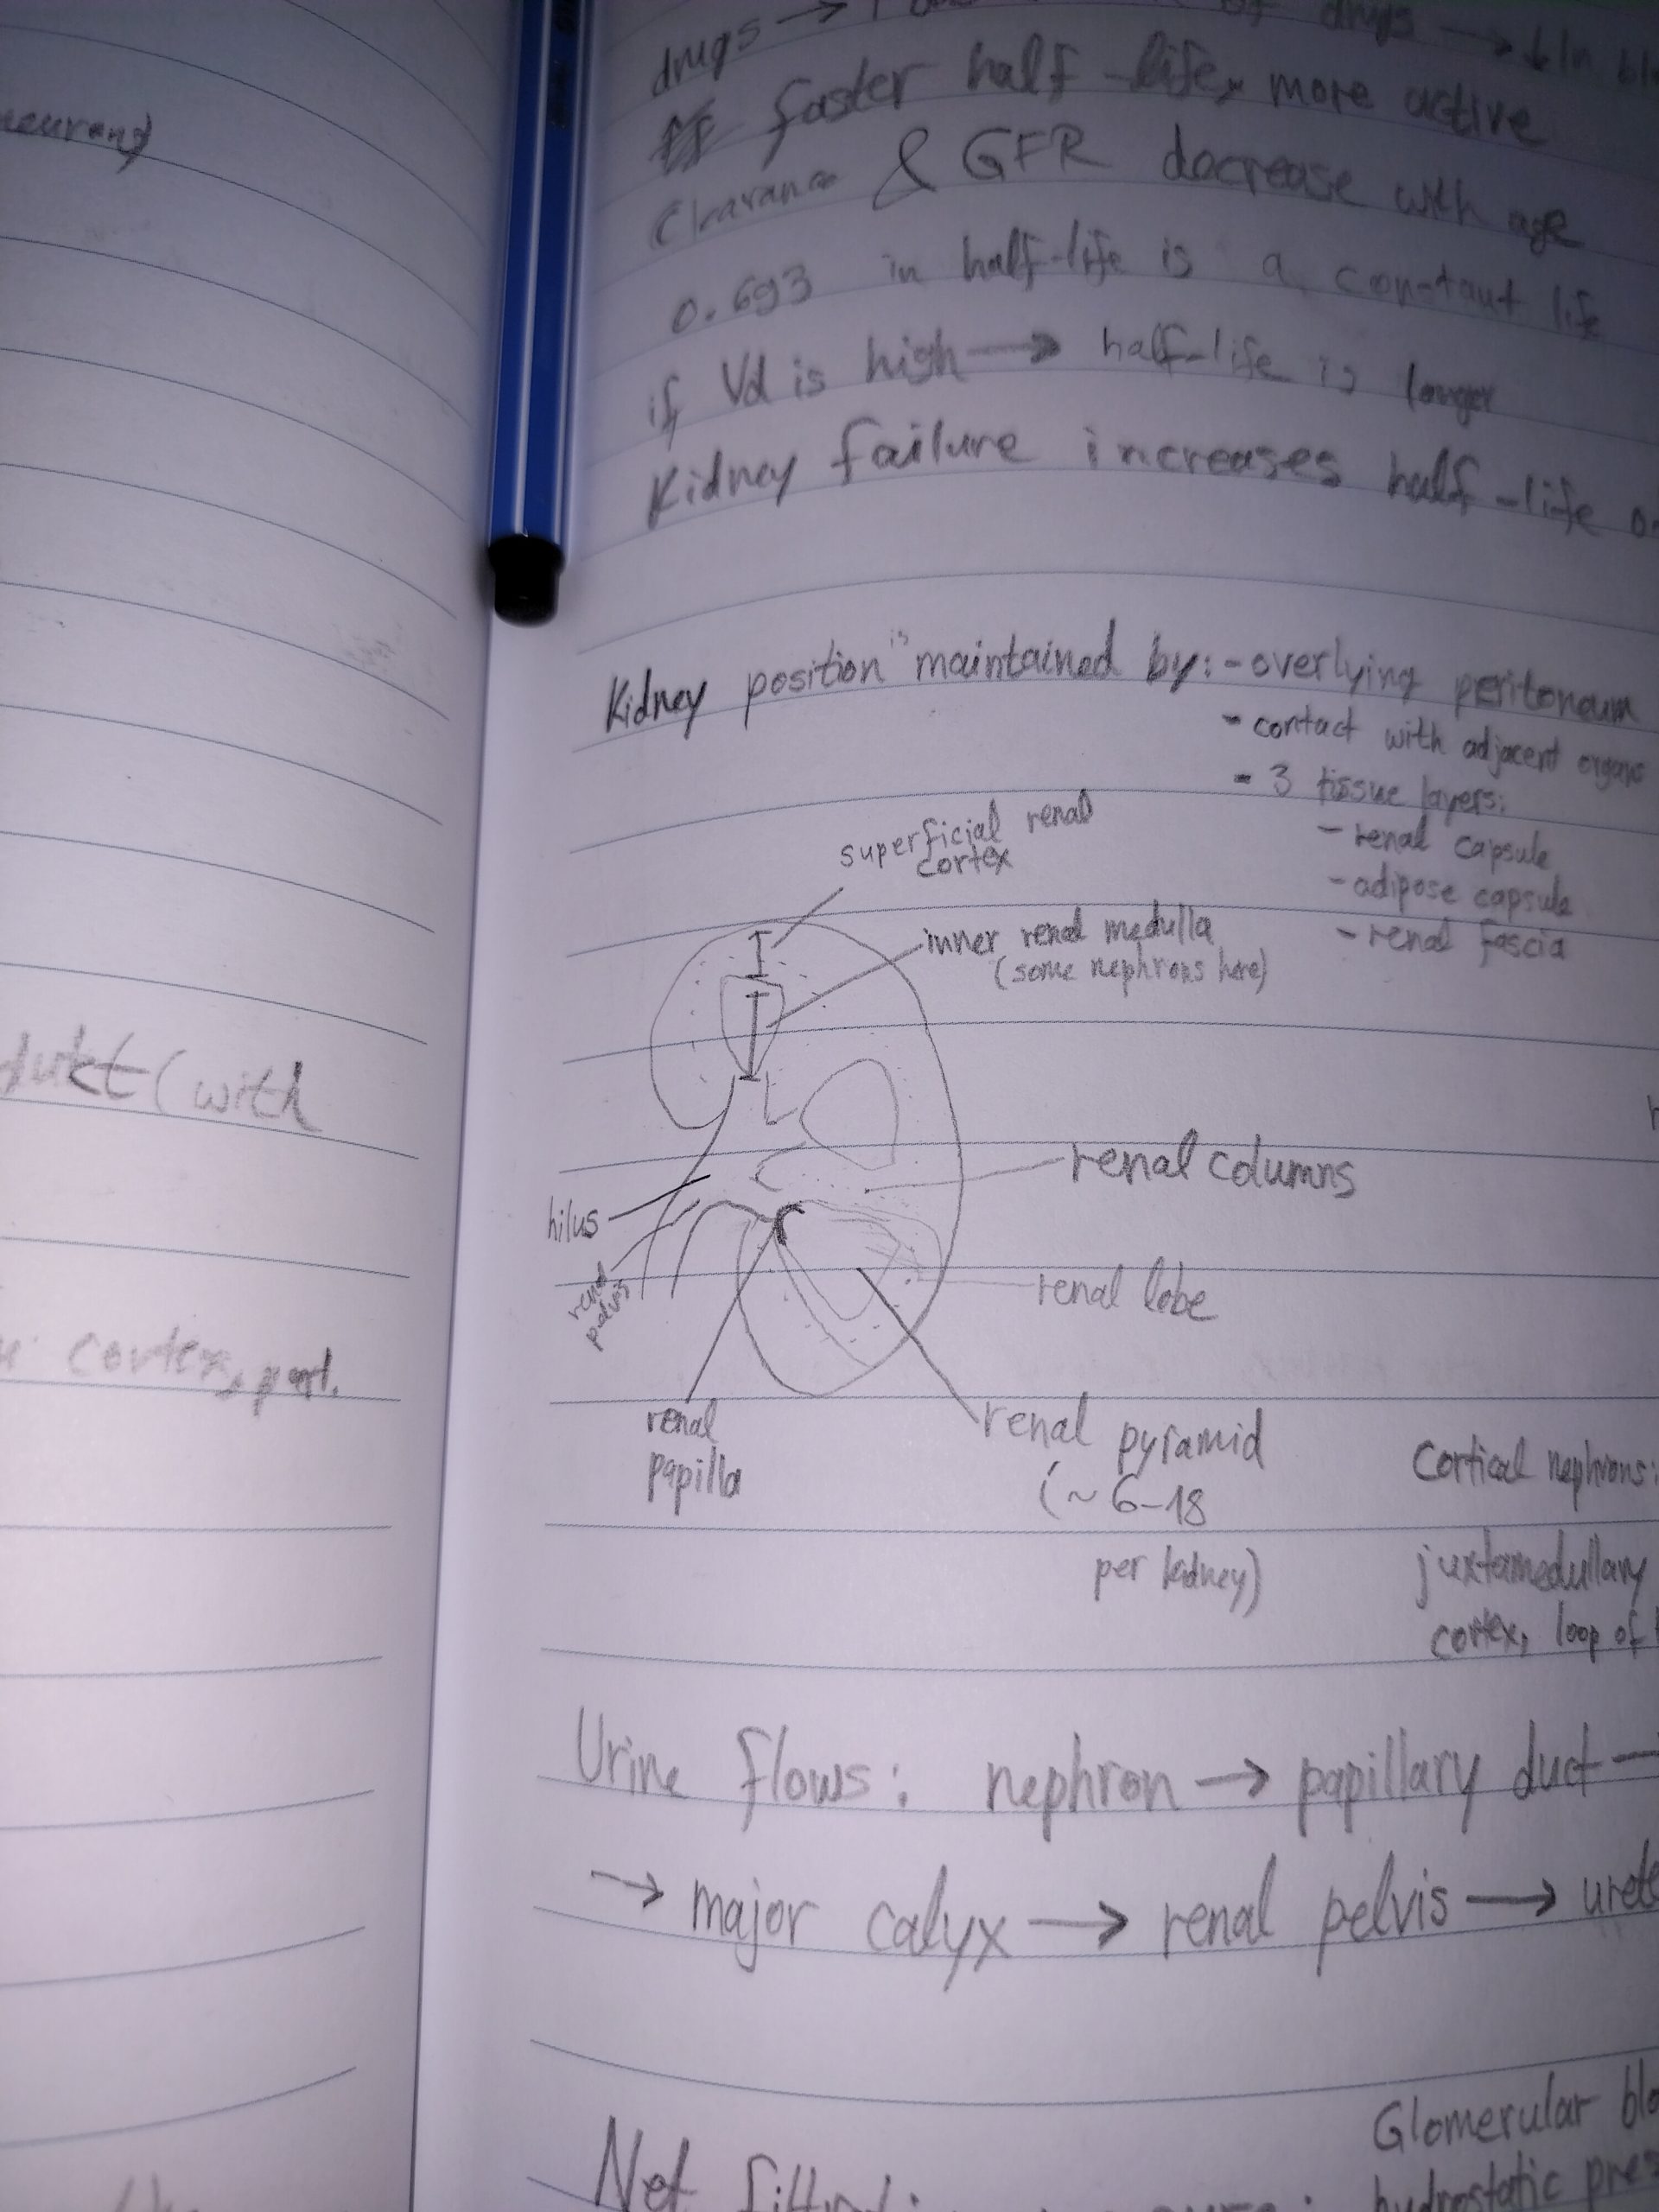 neurons)
dukt (with
cortex, part.
drugs → of drugs → ↓ In
faster half-life, more active
Clearance & GFR decrease with age
0.693 in half-life is a constant life
if Vd is high → half-life is longer
Kidney failure increases half-life
Kidney position is maintained by: - overlying peritoneum
- contact with adjacent organs
- 3 tissue layers:
- renal capsule
- adipose capsule
- renal fascia
superficial renal
cortex
inner renal medulla
(some nephrons here)
renal columns
hilus
renal
pelvis
renal lobe
renal
papilla
renal pyramid
(~ 6-18
per kidney)
Cortical nephrons:
juxtamedullary
cortex, loop of
Urine flows: nephron → papillary duct →
→ major calyx → renal pelvis → urete
Glomerular blo
hydrostatic pres
Net